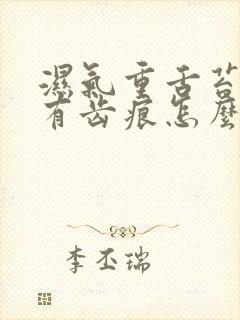 濕氣重舌苔
有齿痕怎麼
李丕瑞